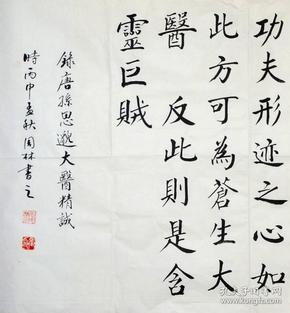 功夫形迹之心如
此方可為蒼生大
醫 反此則是含
靈巨賊
錄唐孫思邈大醫精誠
時丙申孟秋周林書之
孔夫子旧书网